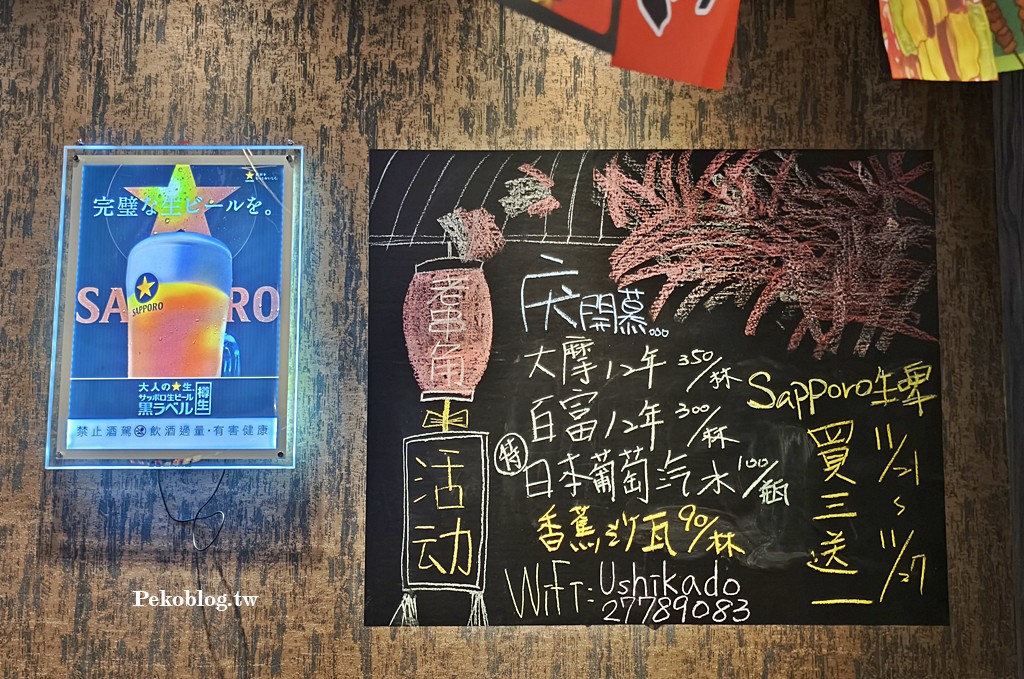 完璧な生ビールを。
SAPPORO
SAPPORO
大人の★生。
サッポロ生ビール
黒ラベル
樽生
禁止酒駕 飲酒過量·有害健康
串角
活动
庆開慕...
大摩12年 350/杯
百富12年 300/杯
特
日本葡萄汽水 100/瓶
香蕉沙瓦 90/杯
WiFi: Ushikado
27789083
Sapporo生啤
買三送一
11/21
~
11/27
Pekoblog.tw